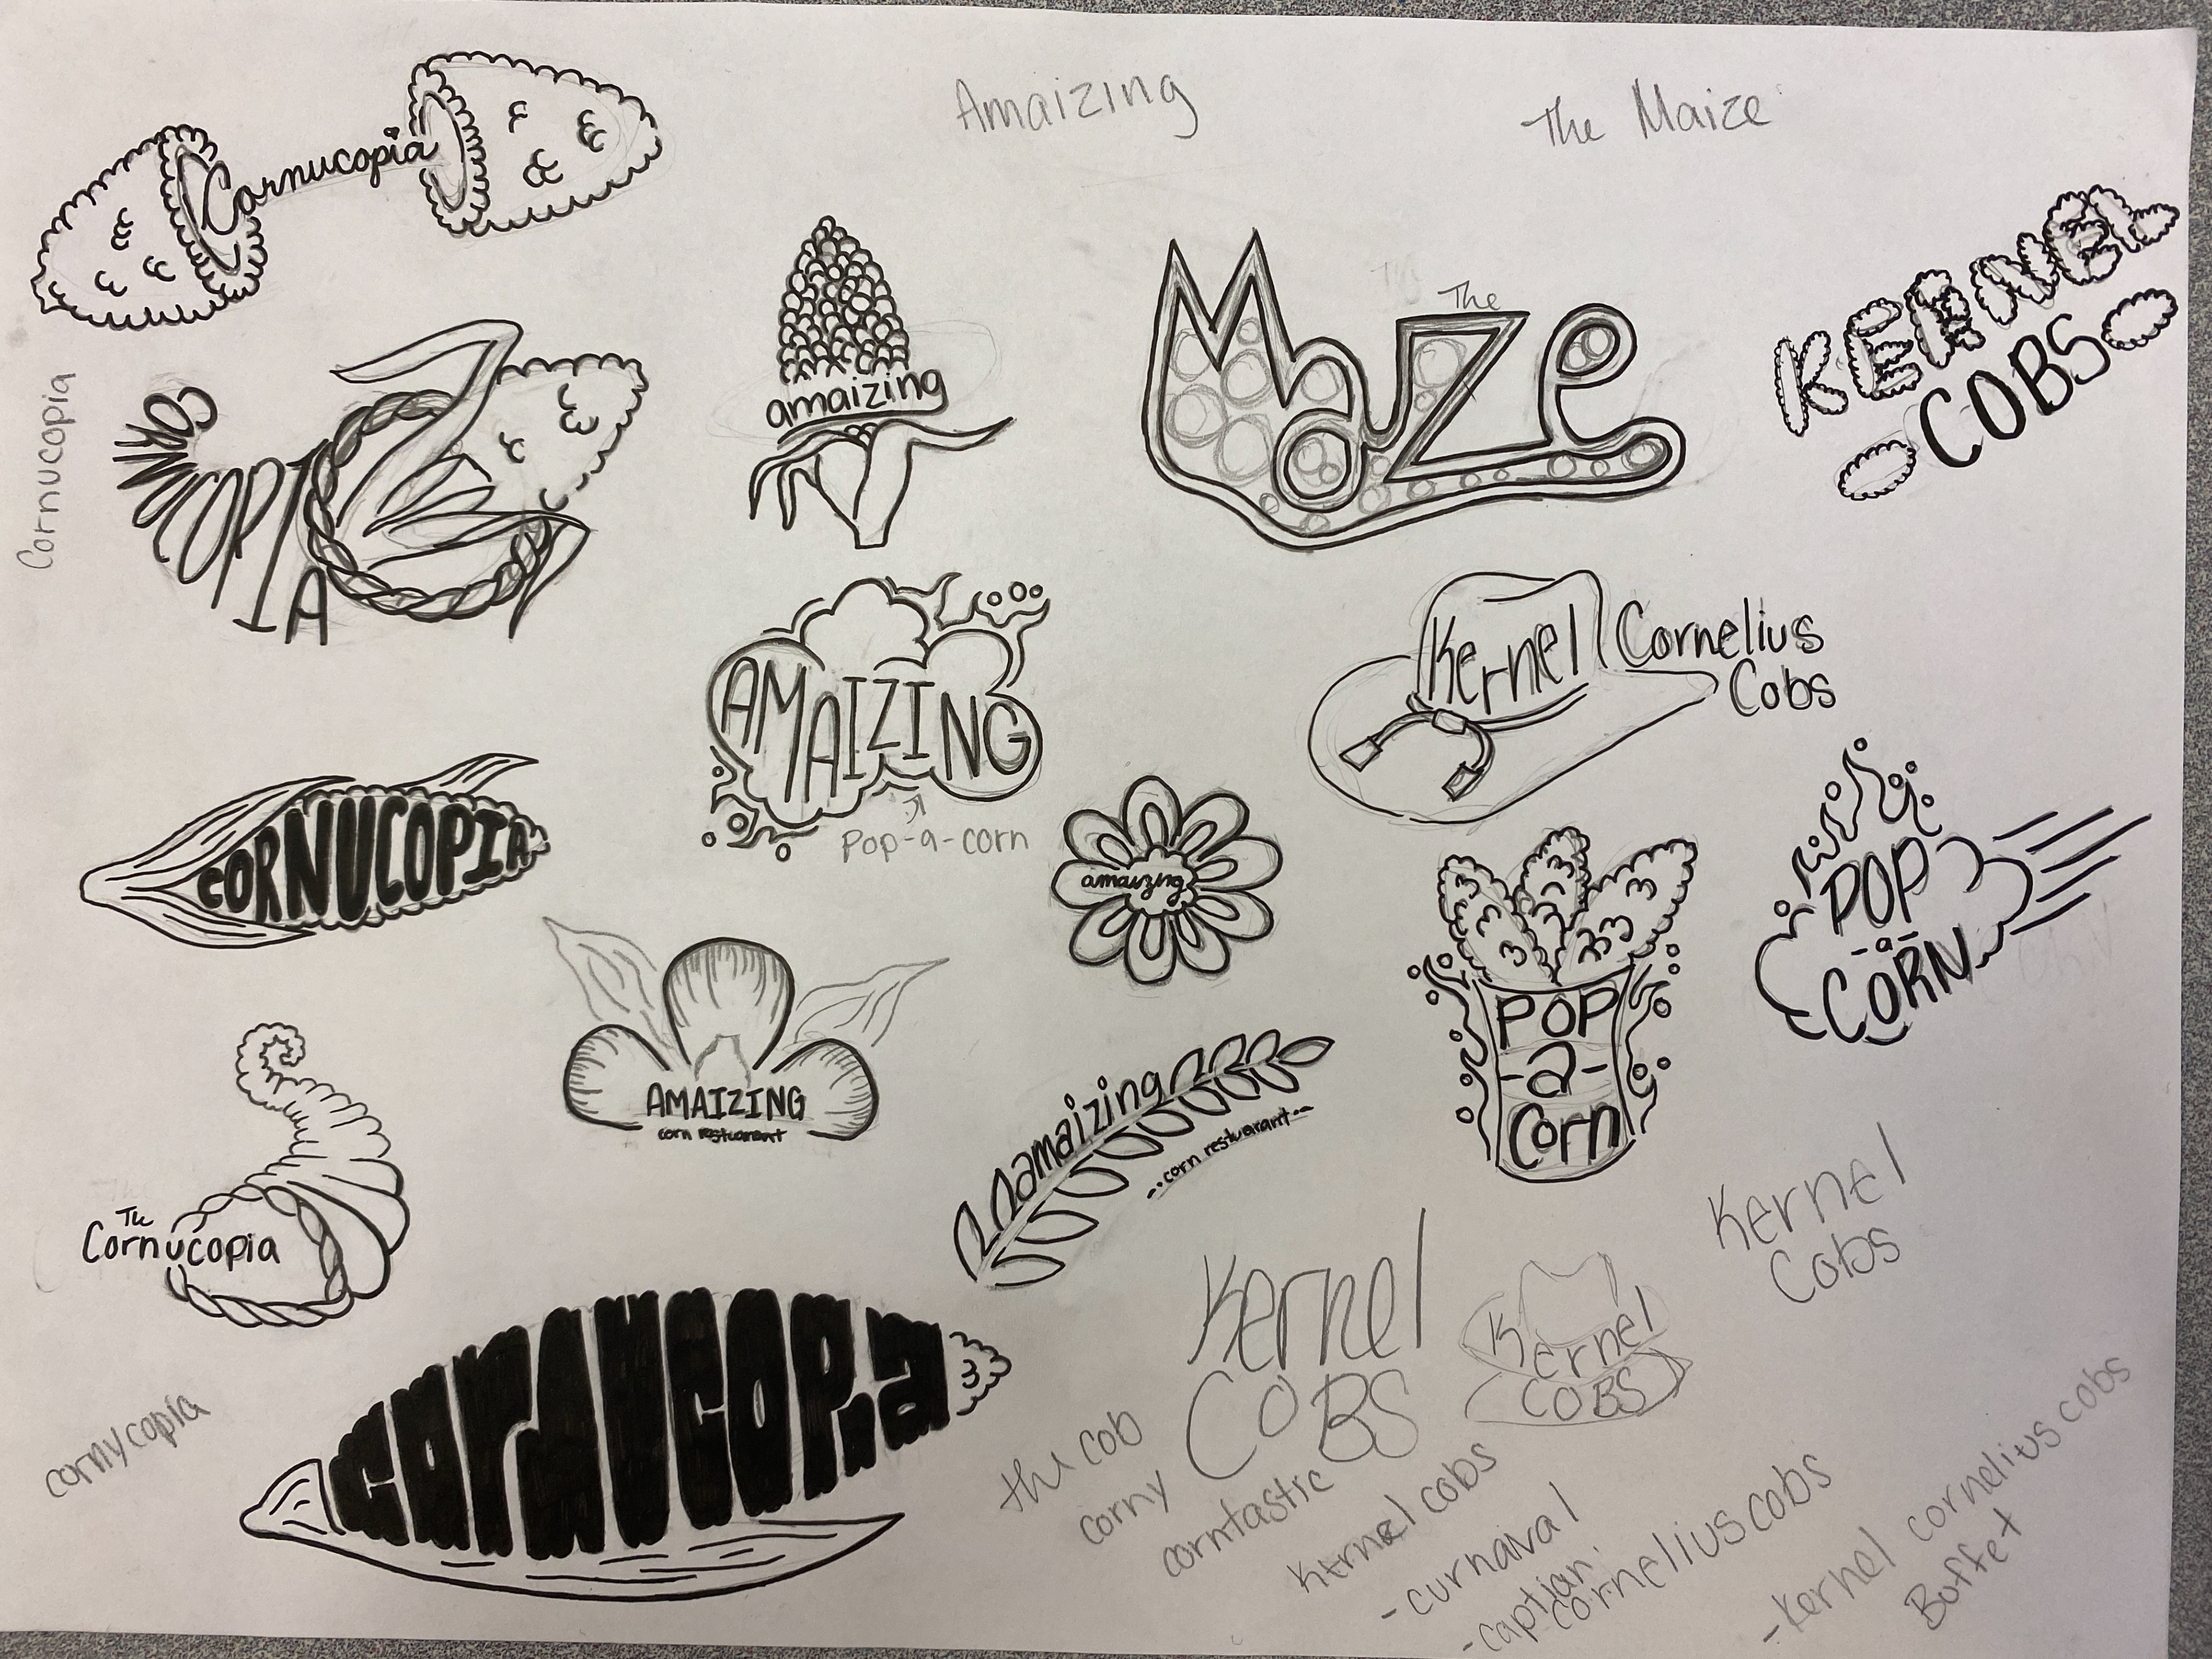 Cornucopia
Amaizing
The Maize
Cornucopia
CORNUCOPIA
amaizing
The
Maize
KERNEL
COBS
AMAIZING
Pop-a-corn
Kernel Cornelius
Cobs
CORNUCOPIA
amaizing
POP
-a-
CORN
AMAIZING
corn restuarant
POP
-a-
Corn
amaizing
-·corn restuarant·-
The
Cornucopia
Kernel
Cobs
Kernel
COBS
Kernel
COBS
cornucopia
cornycopia
the cob
corny
corntastic
Kernel cobs
-curnaival
-captian
cornelius cobs
-Kernel cornelius cobs
Buffet